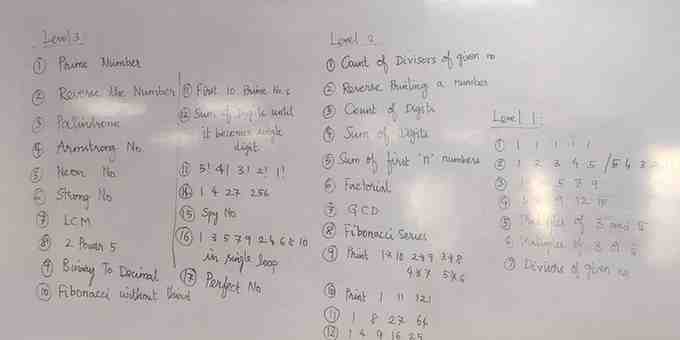 Level 3
① Prime Number
② Reverse the Number
③ Palindrome
④ Armstrong No
⑤ Neon No
⑥ Strong No
⑦ LCM
⑧ 2 Power 5
⑨ Binary To Decimal
⑩ Fibonacci without third
⑪ First 10 Prime No.s
⑫ Sum of Digits until
it becomes single
digit
⑬ 5! 4! 3! 2! 1!
⑭ 1 4 27 256
⑮ Spy No
⑯ 1 3 5 7 9 2 4 6 8 10
in single loop
⑰ Perfect No
Level 2
① Count of Divisors of given no
② Reverse Printing a number
③ Count of Digits
④ Sum of Digits
⑤ Sum of first "n" numbers
⑥ Factorial
⑦ GCD
⑧ Fibonacci Series
⑨ Print 1*10 2*9 3*8
4*7 5*6
⑩ Print 1 11 121
⑪ 1 8 27 64
⑫ 1 4 9 16 25
Level 1:
① 1 1 1 1 1
② 1 2 3 4 5 / 5 4 3
③ 5 7 9
④ 9 12 15
⑤ Multiples of 3 and 5
⑥ Multiples of 3 or 5
⑦ Divisors of given no